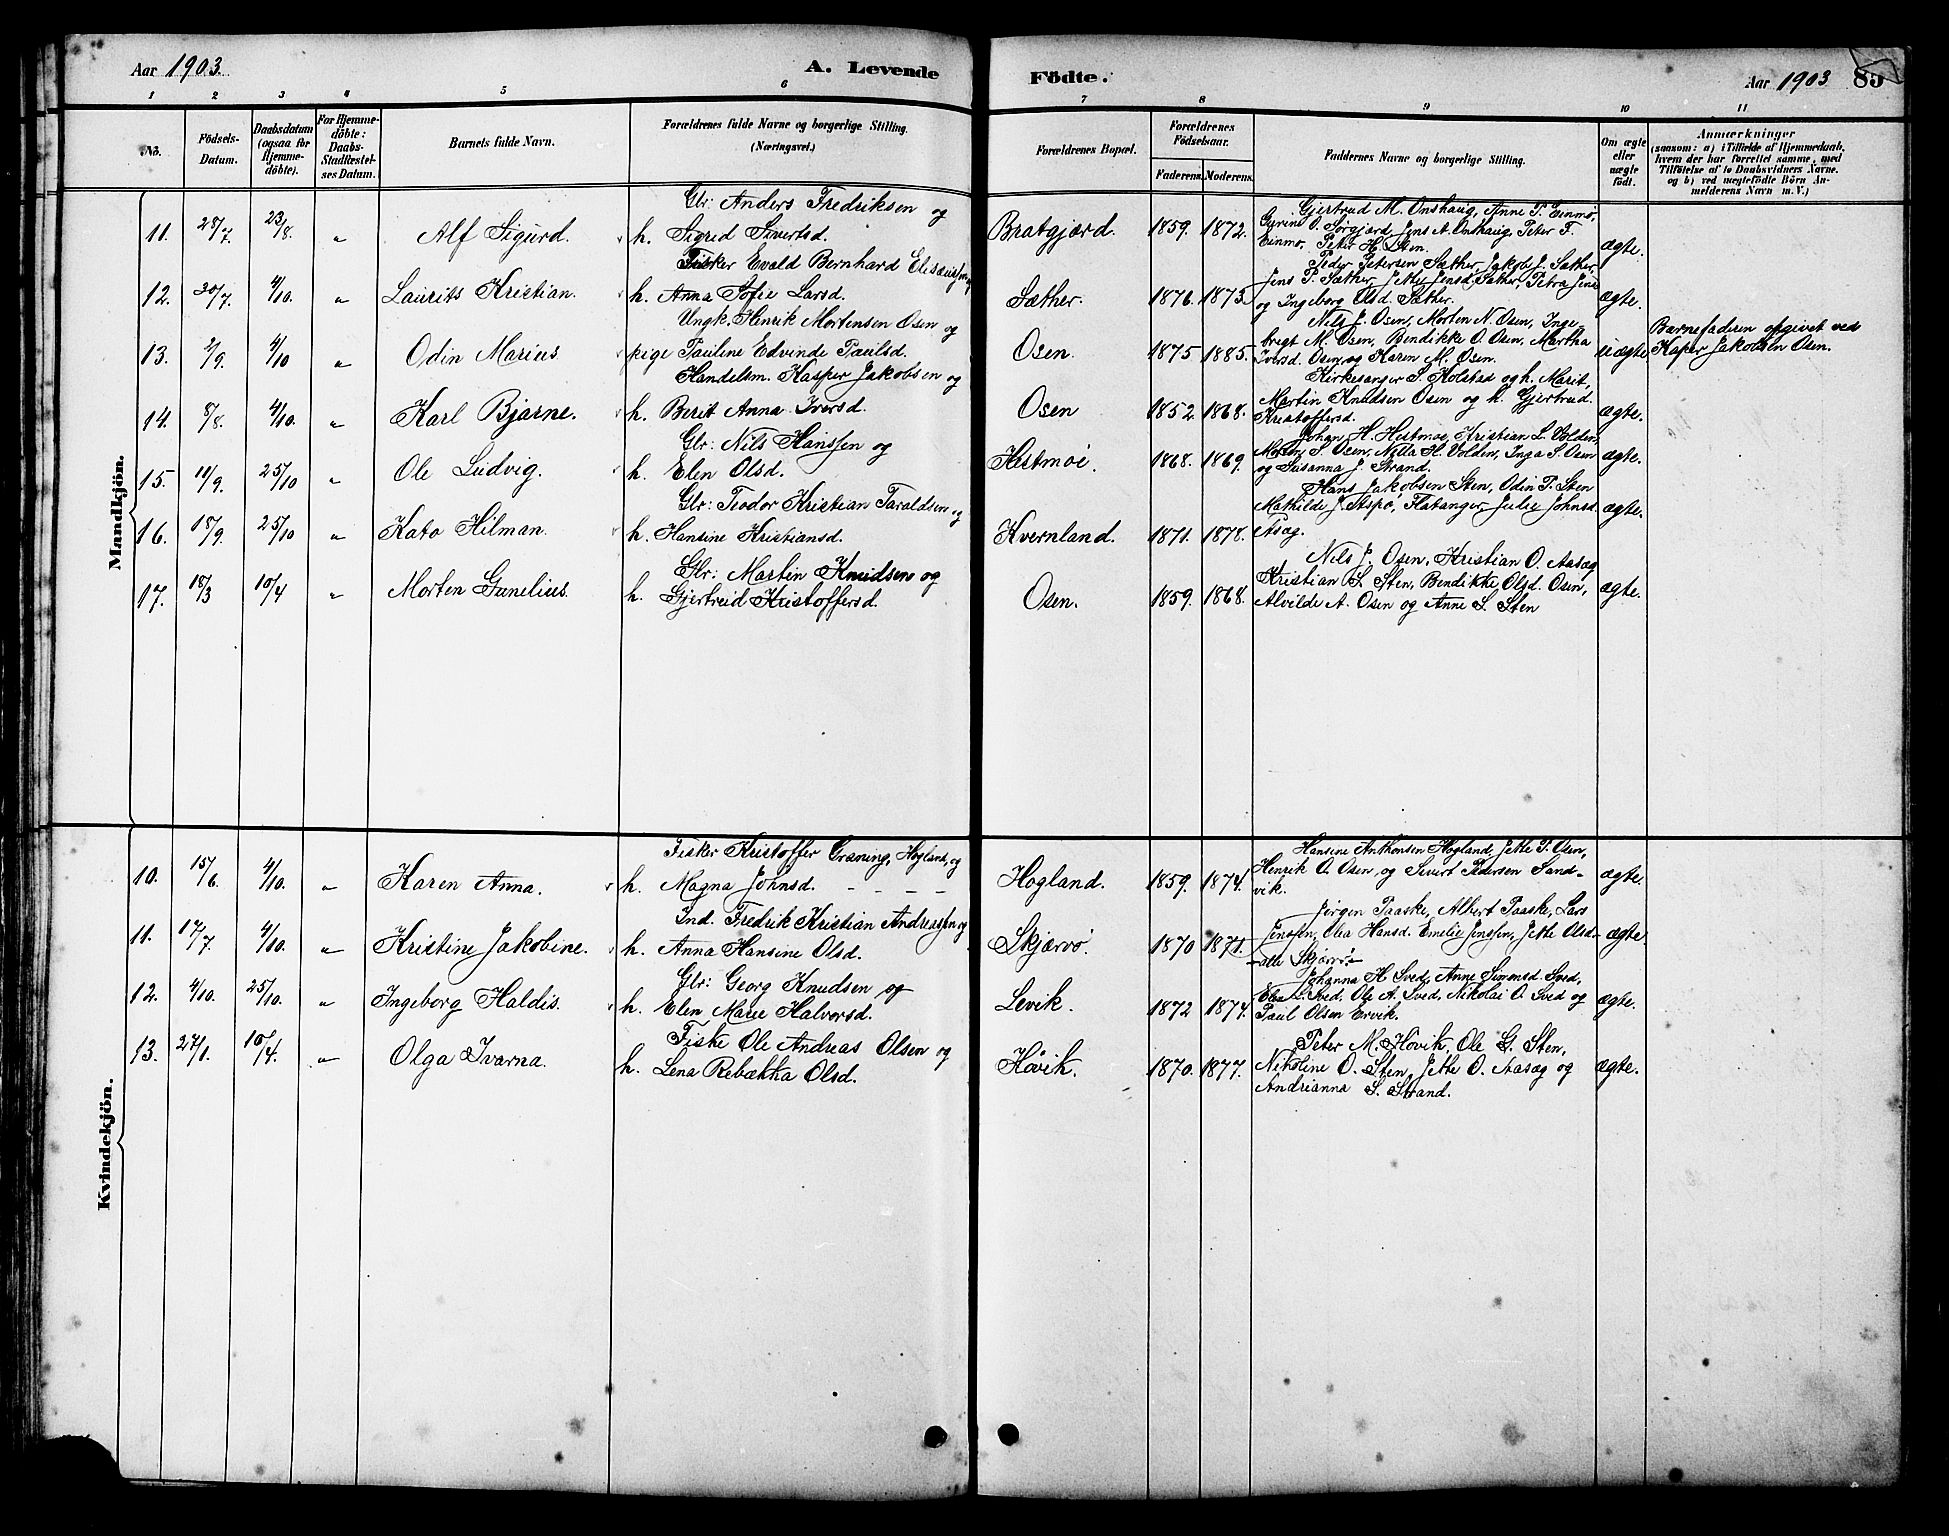 Aar 1903. A. Levende
Fødte. Aar 1903 85
1 2 3 4 5 6
7 8 9 10 11
No.
Födsels-
Datum.
Daabsdatum
(ogsaa for
Hjemme-
döbte).
For Hjemme-
döbte:
Daabs-
Stadfæstel-
ses Datum.
Barnets fulde Navn.
Forældrenes fulde Navne og borgerlige Stilling.
(Næringsvei.)
Forældrenes Bopæl.
Forældrenes
Födselsaar.
Faderens. Moderens.
Faddernes Navne og borgerlige Stilling.
Om ægte
eller
uægte
födt.
Anmærkninger
(saasom: a) i Tilfælde af Hjemmedaab,
hvem der har forrettet samme, med
Tilföielse af to Daabsvidners Navne.
og b) ved uægtefödte Börn An-
melderens Navn m. V.)
Mandkjön.
11. 28/7. 23/8. " Alf Sigurd.
Gbr: Anders Fredriksen og
h. Sigrid Sivertsd.
Bratgjærd. 1859. 1872.
Gjertrud M. Onshaug, Anne P. Einmo,
Gurine O. Sørgjærd, Jens A. Onshaug, Peter F.
Einmo, Peter H. Sten.
ægte.
12. 20/7. 4/10. " Laurits Kristian.
Fisker Evald Bernhard Elisæussen og
h. Anna Sofie Larsd.
Sæther. 1876. 1873.
Peder Petersen Sæther, Jakob J. Sæther,
Jens P. Sæther, Jette Jensd. Sæther, Petra Jens
og Ingeborg Olsd. Sæther.
ægte.
13. 2/9. 4/10 " Odin Marius.
Ungk. Henrik Mortensen Osen og
pige Pauline Edvinde Paulsd.
Osen. 1875 1885.
Nils J. Osen, Morten N. Osen, Inge-
brigt M. Osen, Bendikke O. Osen, Martha
Iversd. Osen og Karen M. Osen.
uægte
Barnefaderen opgivet ved
Kasper Jakobsen Osen.
14. 8/8. 4/10. " Karl Bjarne.
Handelsm. Kasper Jakobsen og
h. Berit Anna Iversd.
Osen 1852. 1868.
Kirkesanger S. Kolstad og h. Marit,
Martin Knudsen Osen og h. Gjertrud
Kristoffersd.
ægte.
15. 11/9. 25/10 " Ole Ludvig.
Gbr: Nils Hanssen og
h. Elen Olsd.
Hestmoi. 1868. 1869.
Johan H. Hestmoe, Kristian L. Volden,
Morten S. Osen, Nilla H. Volden, Inga S. Osen
og Susanna J. Strand.
ægte.
16. 18/9. 25/10 " Kato Hilman.
Gbr: Teodor Kristian Taraldsen og
h. Hansine Kristiansd.
Kvernland. 1871. 1878.
Hans Jakobsen Sten, Odin P. Sten
Mathilde J. Aspø, Flatanger, Julie Johnsd.
Asag.
ægte.
17. 18/3 10/4 " Morten Gunelius.
Gbr: Martin Knudsen og
h. Gjertrud Kristoffersd.
Osen. 1859. 1868.
Nils J. Osen, Kristian O. Aasæg
Kristian S. Sten, Bendikke Olsd. Osen,
Alvilde A. Osen og Anne S. Sten
ægte.
Kvindekjön.
10. 15/6. 4/10. " Karen Anna.
Fisker Kristoffer Græning, Hogland, og
h. Magna Johnsd. - - - -
Hogland. 1859. 1874.
Hansine Anthonsen Hogland, Jette P. Osen,
Henrik O. Osen, og Sivert Pedersen Sand-
vik.
ægte.
11. 17/7. 4/10. " Kristine Jakobine.
Ind. Fredrik Kristian Andreassen og
h. Anna Hansine Olsd.
Skjærvø. 1870 1871.
Jørgen Paaske, Albert Paaske, Lars
Jenssen, Olea Hansd. Emelie Jenssen, Jette Olsd.
- alle Skjærvø. -
ægte
12. 4/10. 25/10. " Ingeborg Haldis.
Gbr: Georg Knudsen og
h. Elen Marie Halvorsd.
Levik. 1872 1874.
Johanna H. Sved, Anne Simonsd. Sved,
Elen L. Sved, Ole A. Sved, Nikolai O. Sved og
Paul Olsen Ervik.
ægte.
13. 27/1. 10/4. " Olga Ivarna.
Fiske Ole Andreas Olsen og
h. Lena Rebækka Olsd.
Høvik. 1870. 1877.
Peter M. Høvik, Ole G. Sten,
Nikoline O. Sten, Jette O. Aasæg og
Andrianna S. Strand.
ægte.